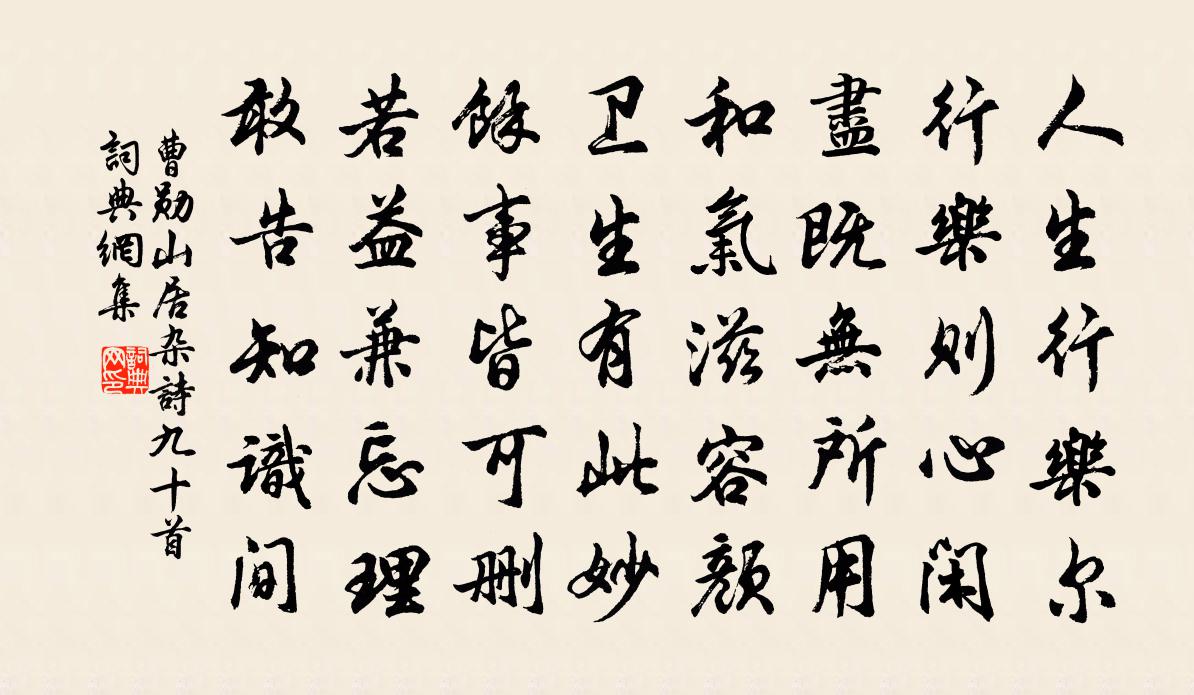 人生行樂尔
行樂則心闲
盡既無所用
和氣滋容顏
卫生有此妙
餘事皆可删
若益兼忘理
敢告知識间
曹勋山居杂詩九十首
詞典網集
詞典网印